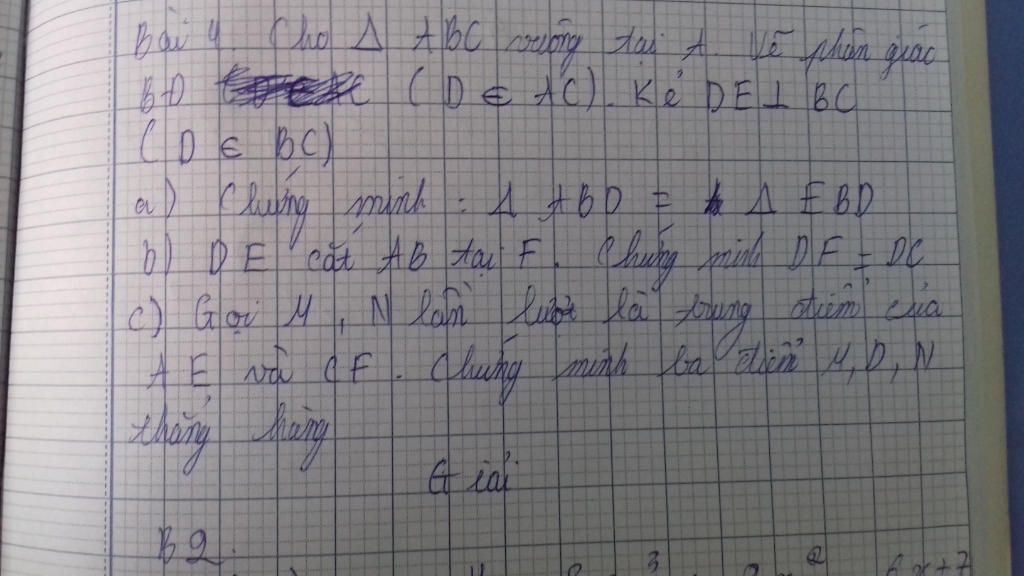 Bài 4. Cho Δ ABC vuông tại A. Vẽ phân giác
BD (D ∈ AC). Kẻ DE ⊥ BC
(D ∈ BC)
a) Chứng minh : Δ ABD = Δ EBD
b) DE cắt AB tại F. Chứng minh DF = DC
c) Gọi M, N lần lượt là trung điểm của
AE và CF. Chứng minh ba điểm M, D, N
thẳng hàng
Giải
B2.